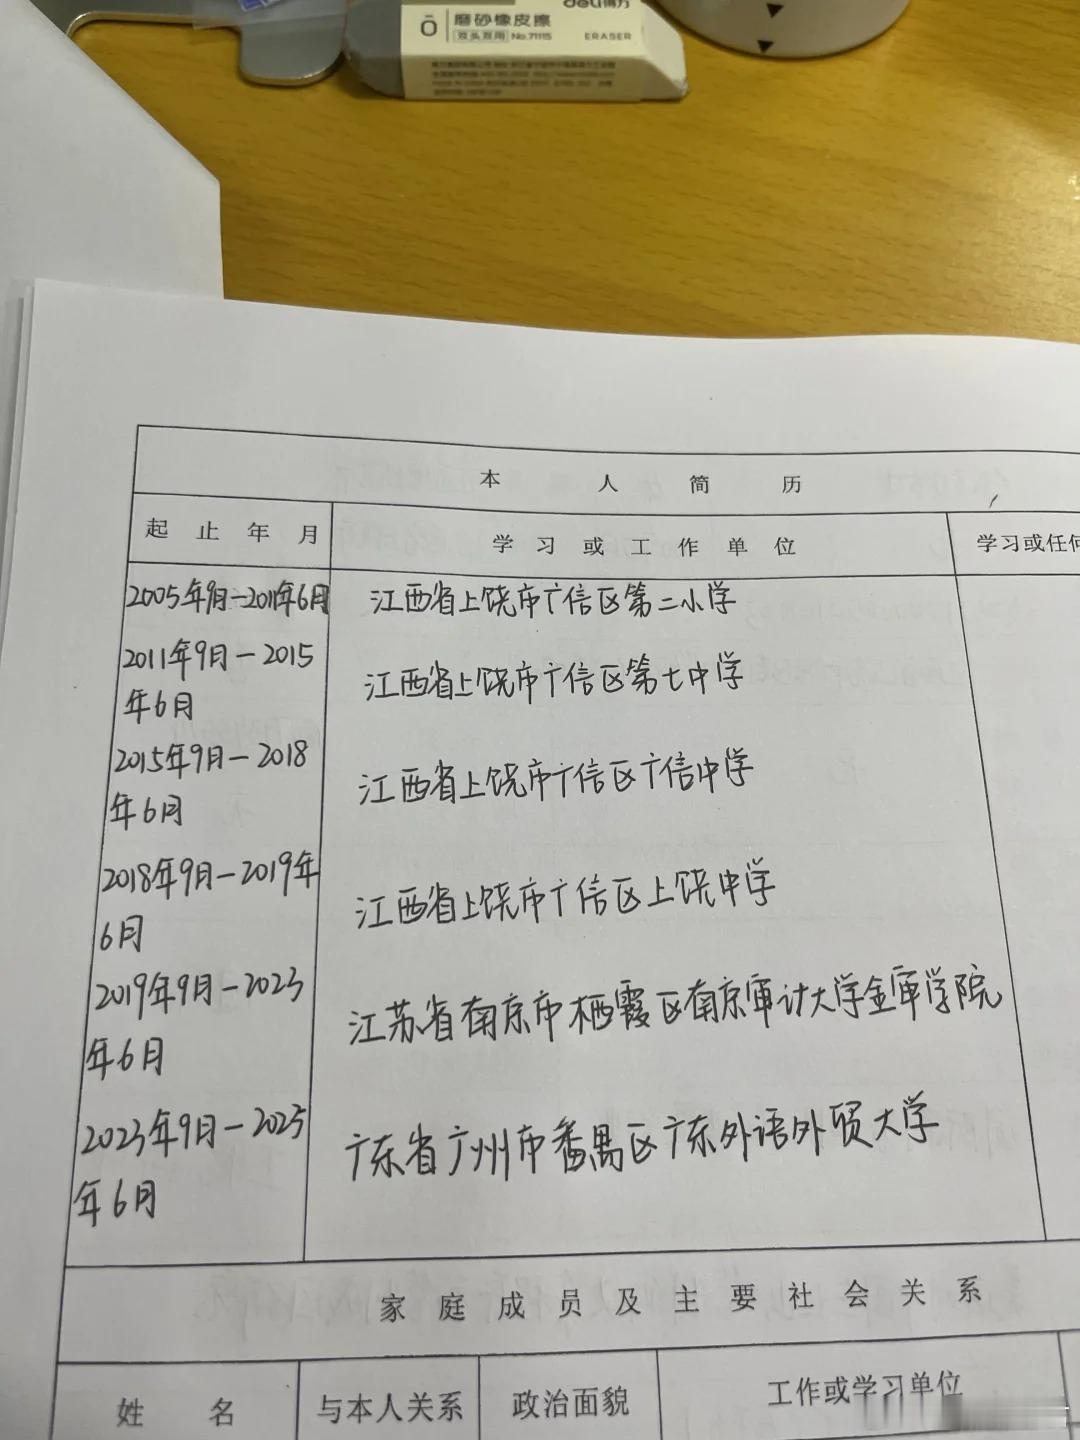 deli得力
磨砂橡皮擦
双头双用 No.71115
ERASER
本人简历
起止年月 学习或工作单位 学习或任何
2005年9月—2011年6月 江西省上饶市广信区第二小学
2011年9月—2015年6月 江西省上饶市广信区第七中学
2015年9月—2018年6月 江西省上饶市广信区广信中学
2018年9月—2019年6月 江西省上饶市广信区上饶中学
2019年9月—2023年6月 江苏省南京市栖霞区南京审计大学金审学院
2023年9月—2025年6月 广东省广州市番禺区广东外语外贸大学
家庭成员及主要社会关系
姓名 与本人关系 政治面貌 工作或学习单位